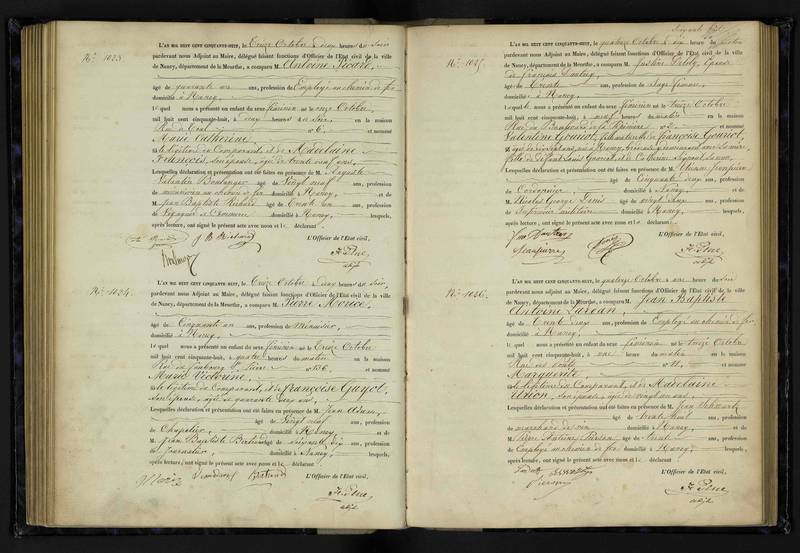 N.° 1023.
L'AN MIL HUIT CENT CINQUANTE-HUIT, le treize Octobre deux heures du soir
pardevant nous Adjoint au Maire, délégué faisant fonctions d'Officier de l'Etat civil de la ville
de Nancy, département de la Meurthe, a comparu M. Antoine Picard,
âgé de quarante ans, profession de Employé au chemin de fer
domicilié à Nancy,
lequel nous a présenté un enfant du sexe féminin né le onze Octobre
mil huit cent cinquante-huit, à deux heures du soir, en la maison
Rue de n° 6, et nommé
Marie Catherine,
fille légitime du Comparant, et de Madelaine
François, son épouse, âgée de trente neuf ans,
Lesquelles déclaration et présentation ont été faites en présence de M. Auguste
Valentin Boulanger âgé de vingt neuf ans, profession
de mécanicien au chemin de fer domicilié à Nancy, et de
M. Jean Baptiste Richard âgé de trente un ans, profession
de Voyageur de Commerce domicilié à Nancy, lesquels,
après lecture, ont signé le présent acte avec nous et le déclarant
J B Richard
L'Officier de l'Etat civil,
adjt
N.° 1024.
L'AN MIL HUIT CENT CINQUANTE-HUIT, le treize Octobre deux heures du soir,
pardevant nous Adjoint au Maire, délégué faisant fonctions d'Officier de l'Etat civil de la ville
de Nancy, département de la Meurthe, a comparu M. Pierre Morice,
âgé de Cinquante un ans, profession de Menuisier,
domicilié à Nancy,
lequel nous a présenté un enfant du sexe féminin né le treize Octobre
mil huit cent cinquante-huit, à quatre heures du matin en la maison
Rue du faubourg St. Pierre n° 136, et nommé
Marie Victorine,
fille légitime du Comparant, et de françoise Guyot,
son épouse, âgée de quarante cinq ans,
Lesquelles déclaration et présentation ont été faites en présence de M. Jean Adam,
âgé de vingt neuf ans, profession
de Chapelier, domicilié à Nancy, et de
M. Jean Baptiste Bertrand âgé de soixante dix ans, profession
de Journalier, domicilié à Nancy, lesquels,
après lecture, ont signé le présent acte avec nous et le déclarant
Bertrand
L'Officier de l'Etat civil,
adjt
N.° 1025.
L'AN MIL HUIT CENT CINQUANTE-HUIT, le quatorze Octobre dix heures du matin
pardevant nous Adjoint au Maire, délégué faisant fonctions d'Officier de l'Etat civil de la ville
de Nancy, département de la Meurthe, a comparu M. Justine épouse
de françois
âgé de trente ans, profession de Sage femme,
domicilié à Nancy,
lequel nous a présenté un enfant du sexe féminin né le treize Octobre
mil huit cent cinquante-huit, à neuf heures du matin en la maison
Rue du de la Pépinière n° 2, et nommé
Valentine Gouriot, fille naturelle de françoise Gouriot,
Lesquelles déclaration et présentation ont été faites en présence de M.
âgé de Cinquante deux ans, profession
de Cordonnier, domicilié à Nancy, et de
M. Nicolas George Denis âgé de vingt deux ans, profession
de militaire domicilié à Nancy, lesquels,
après lecture, ont signé le présent acte avec nous et le déclarant
L'Officier de l'Etat civil,
adjt
N.° 1026.
L'AN MIL HUIT CENT CINQUANTE-HUIT, le quatorze Octobre une heure du soir
pardevant nous Adjoint au Maire, délégué faisant fonctions d'Officier de l'Etat civil de la ville
de Nancy, département de la Meurthe, a comparu M. Jean Baptiste
Antoine
âgé de trente deux ans, profession de Employé au chemin de fer
domicilié à Nancy,
lequel nous a présenté un enfant du sexe féminin né le treize Octobre
mil huit cent cinquante-huit, à une heure du matin en la maison
Rue des n° 11, et nommé
Marguerite
fille légitime du Comparant, et de Madelaine
son épouse, âgée de vingt un ans,
Lesquelles déclaration et présentation ont été faites en présence de M. Jean Schwartz
âgé de trente huit ans, profession
de marchand de vin domicilié à Nancy, et de
M. Pierre Antoine âgé de trente ans, profession
de Employé au chemin de fer domicilié à Nancy, lesquels,
après lecture, ont signé le présent acte avec nous et le déclarant
L'Officier de l'Etat civil,
adjt